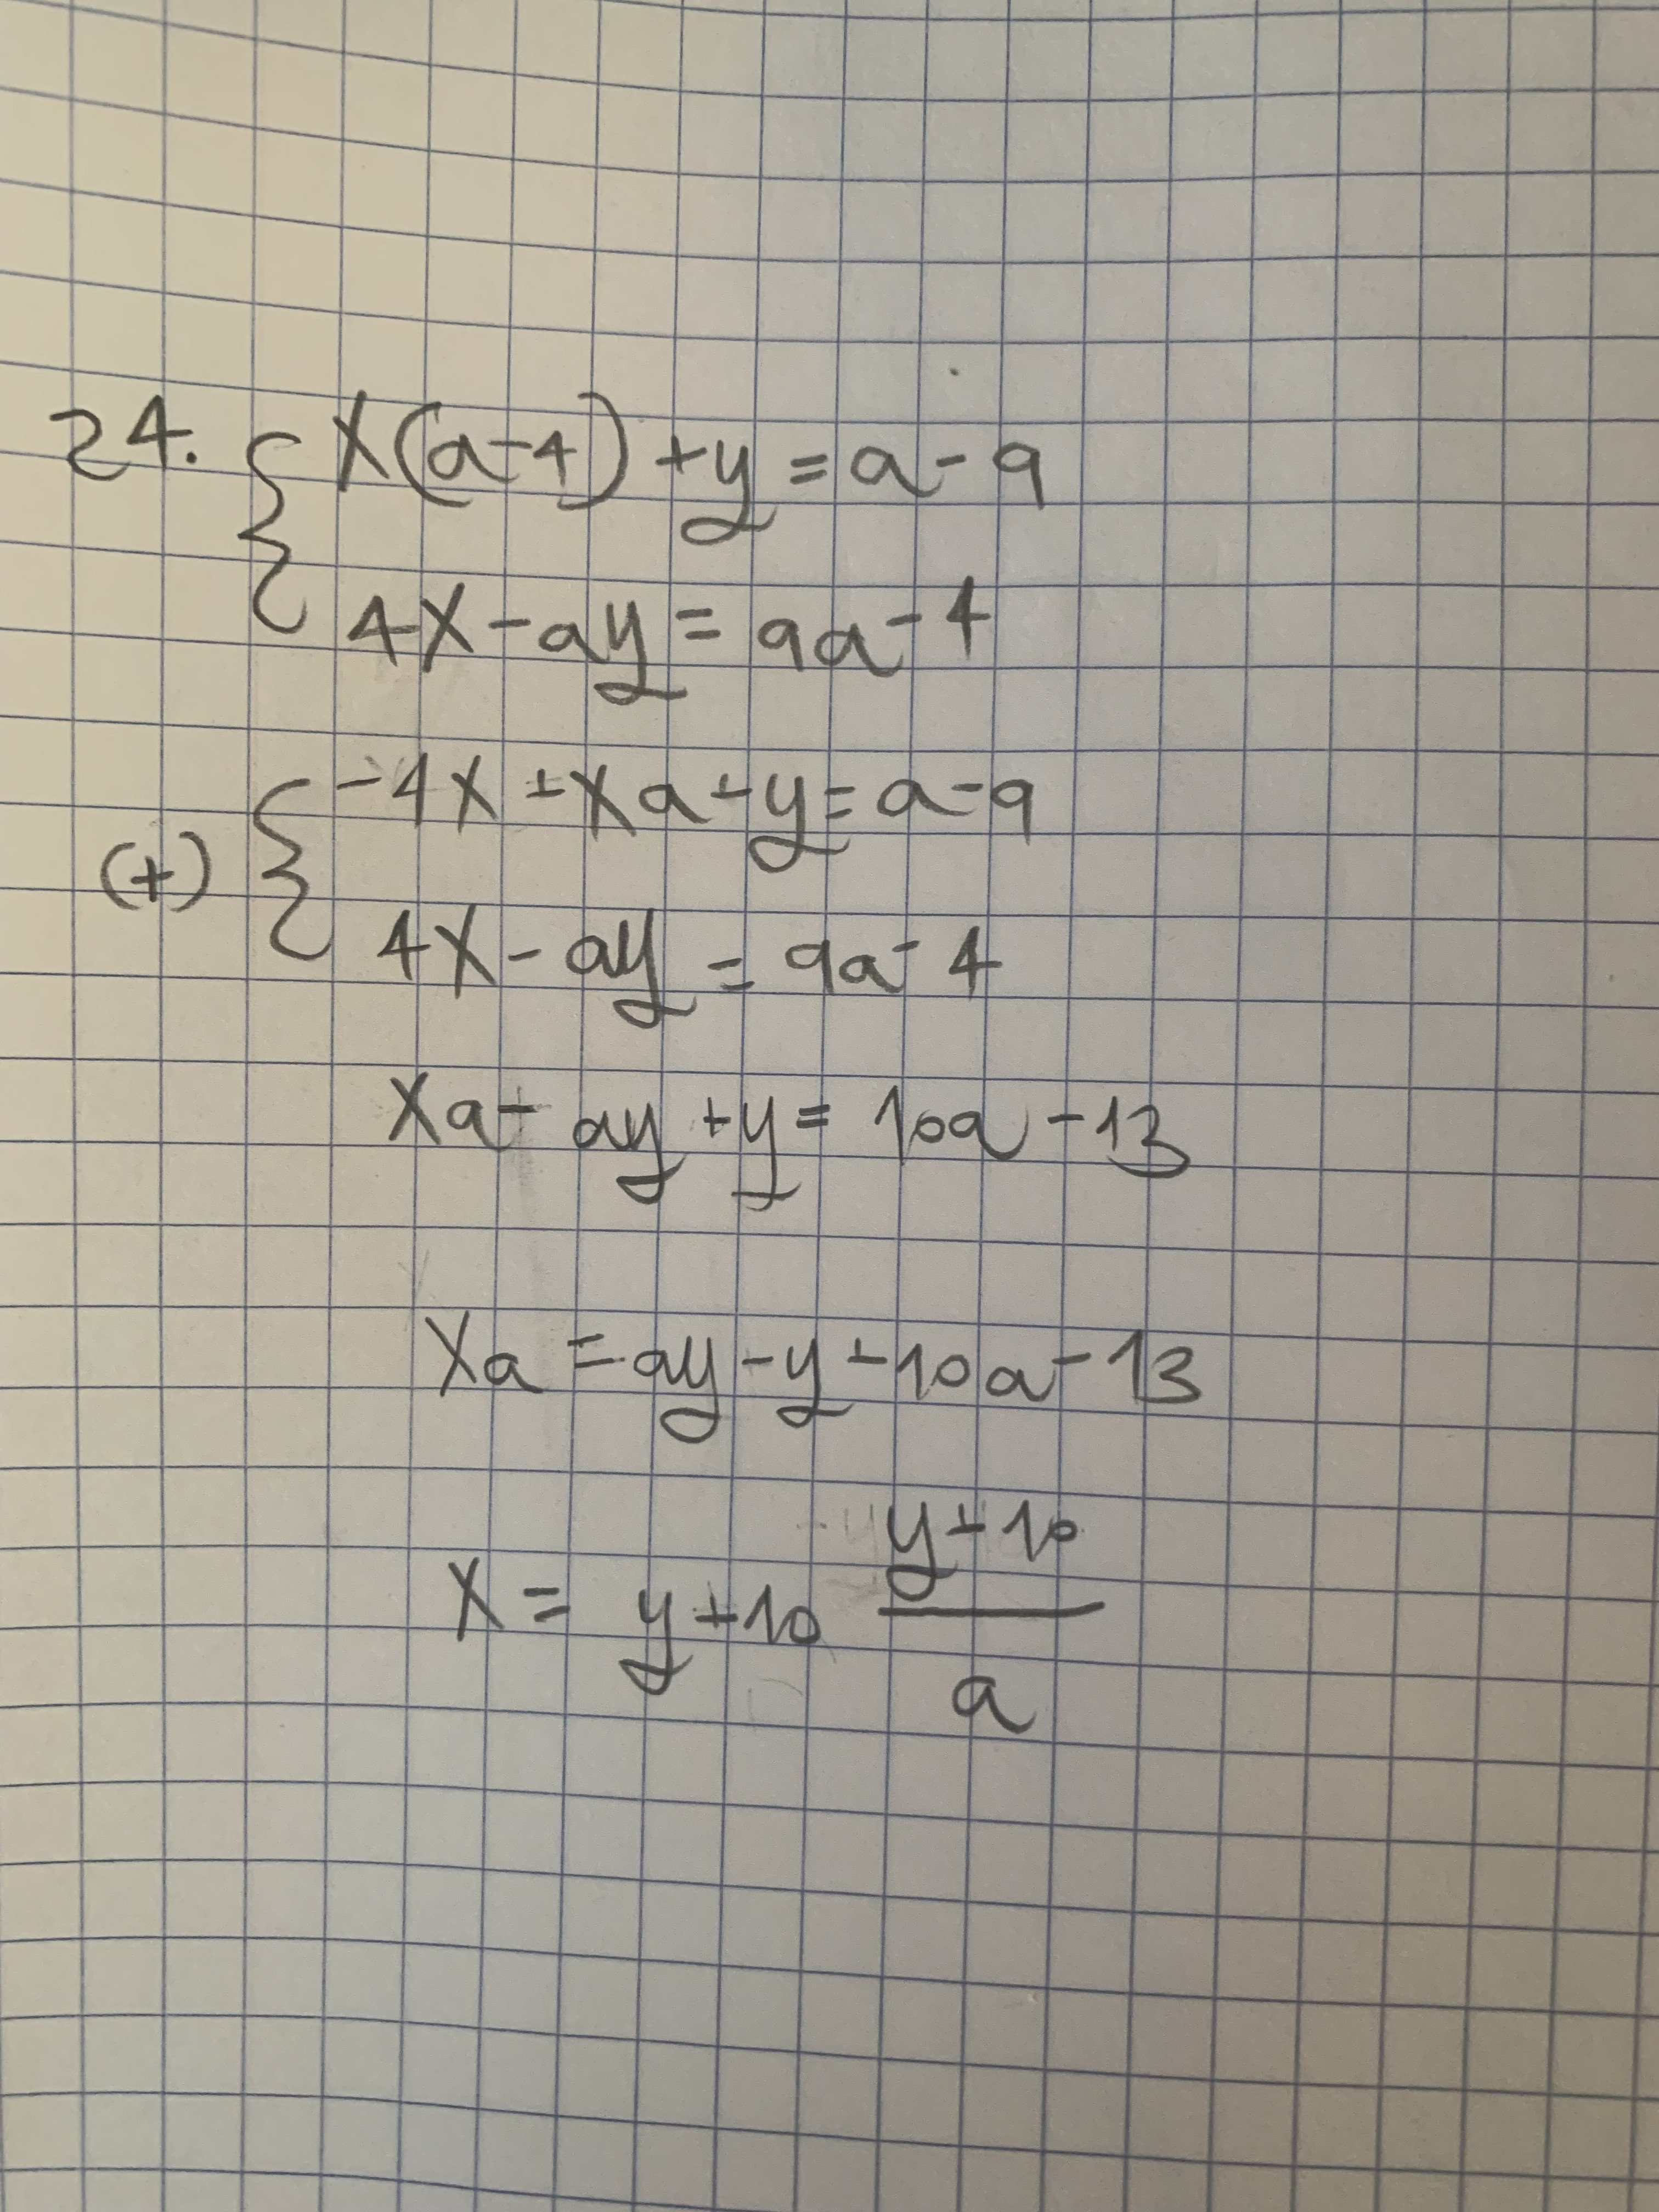 24. { x(a-4) + y = a - 9
4x - ay = 9a - 4
(+) { -4x + xa + y = a - 9
4x - ay = 9a - 4
xa - ay + y = 10a - 13
xa = ay - y + 10a - 13
x = y + 10 (y + 10)/a